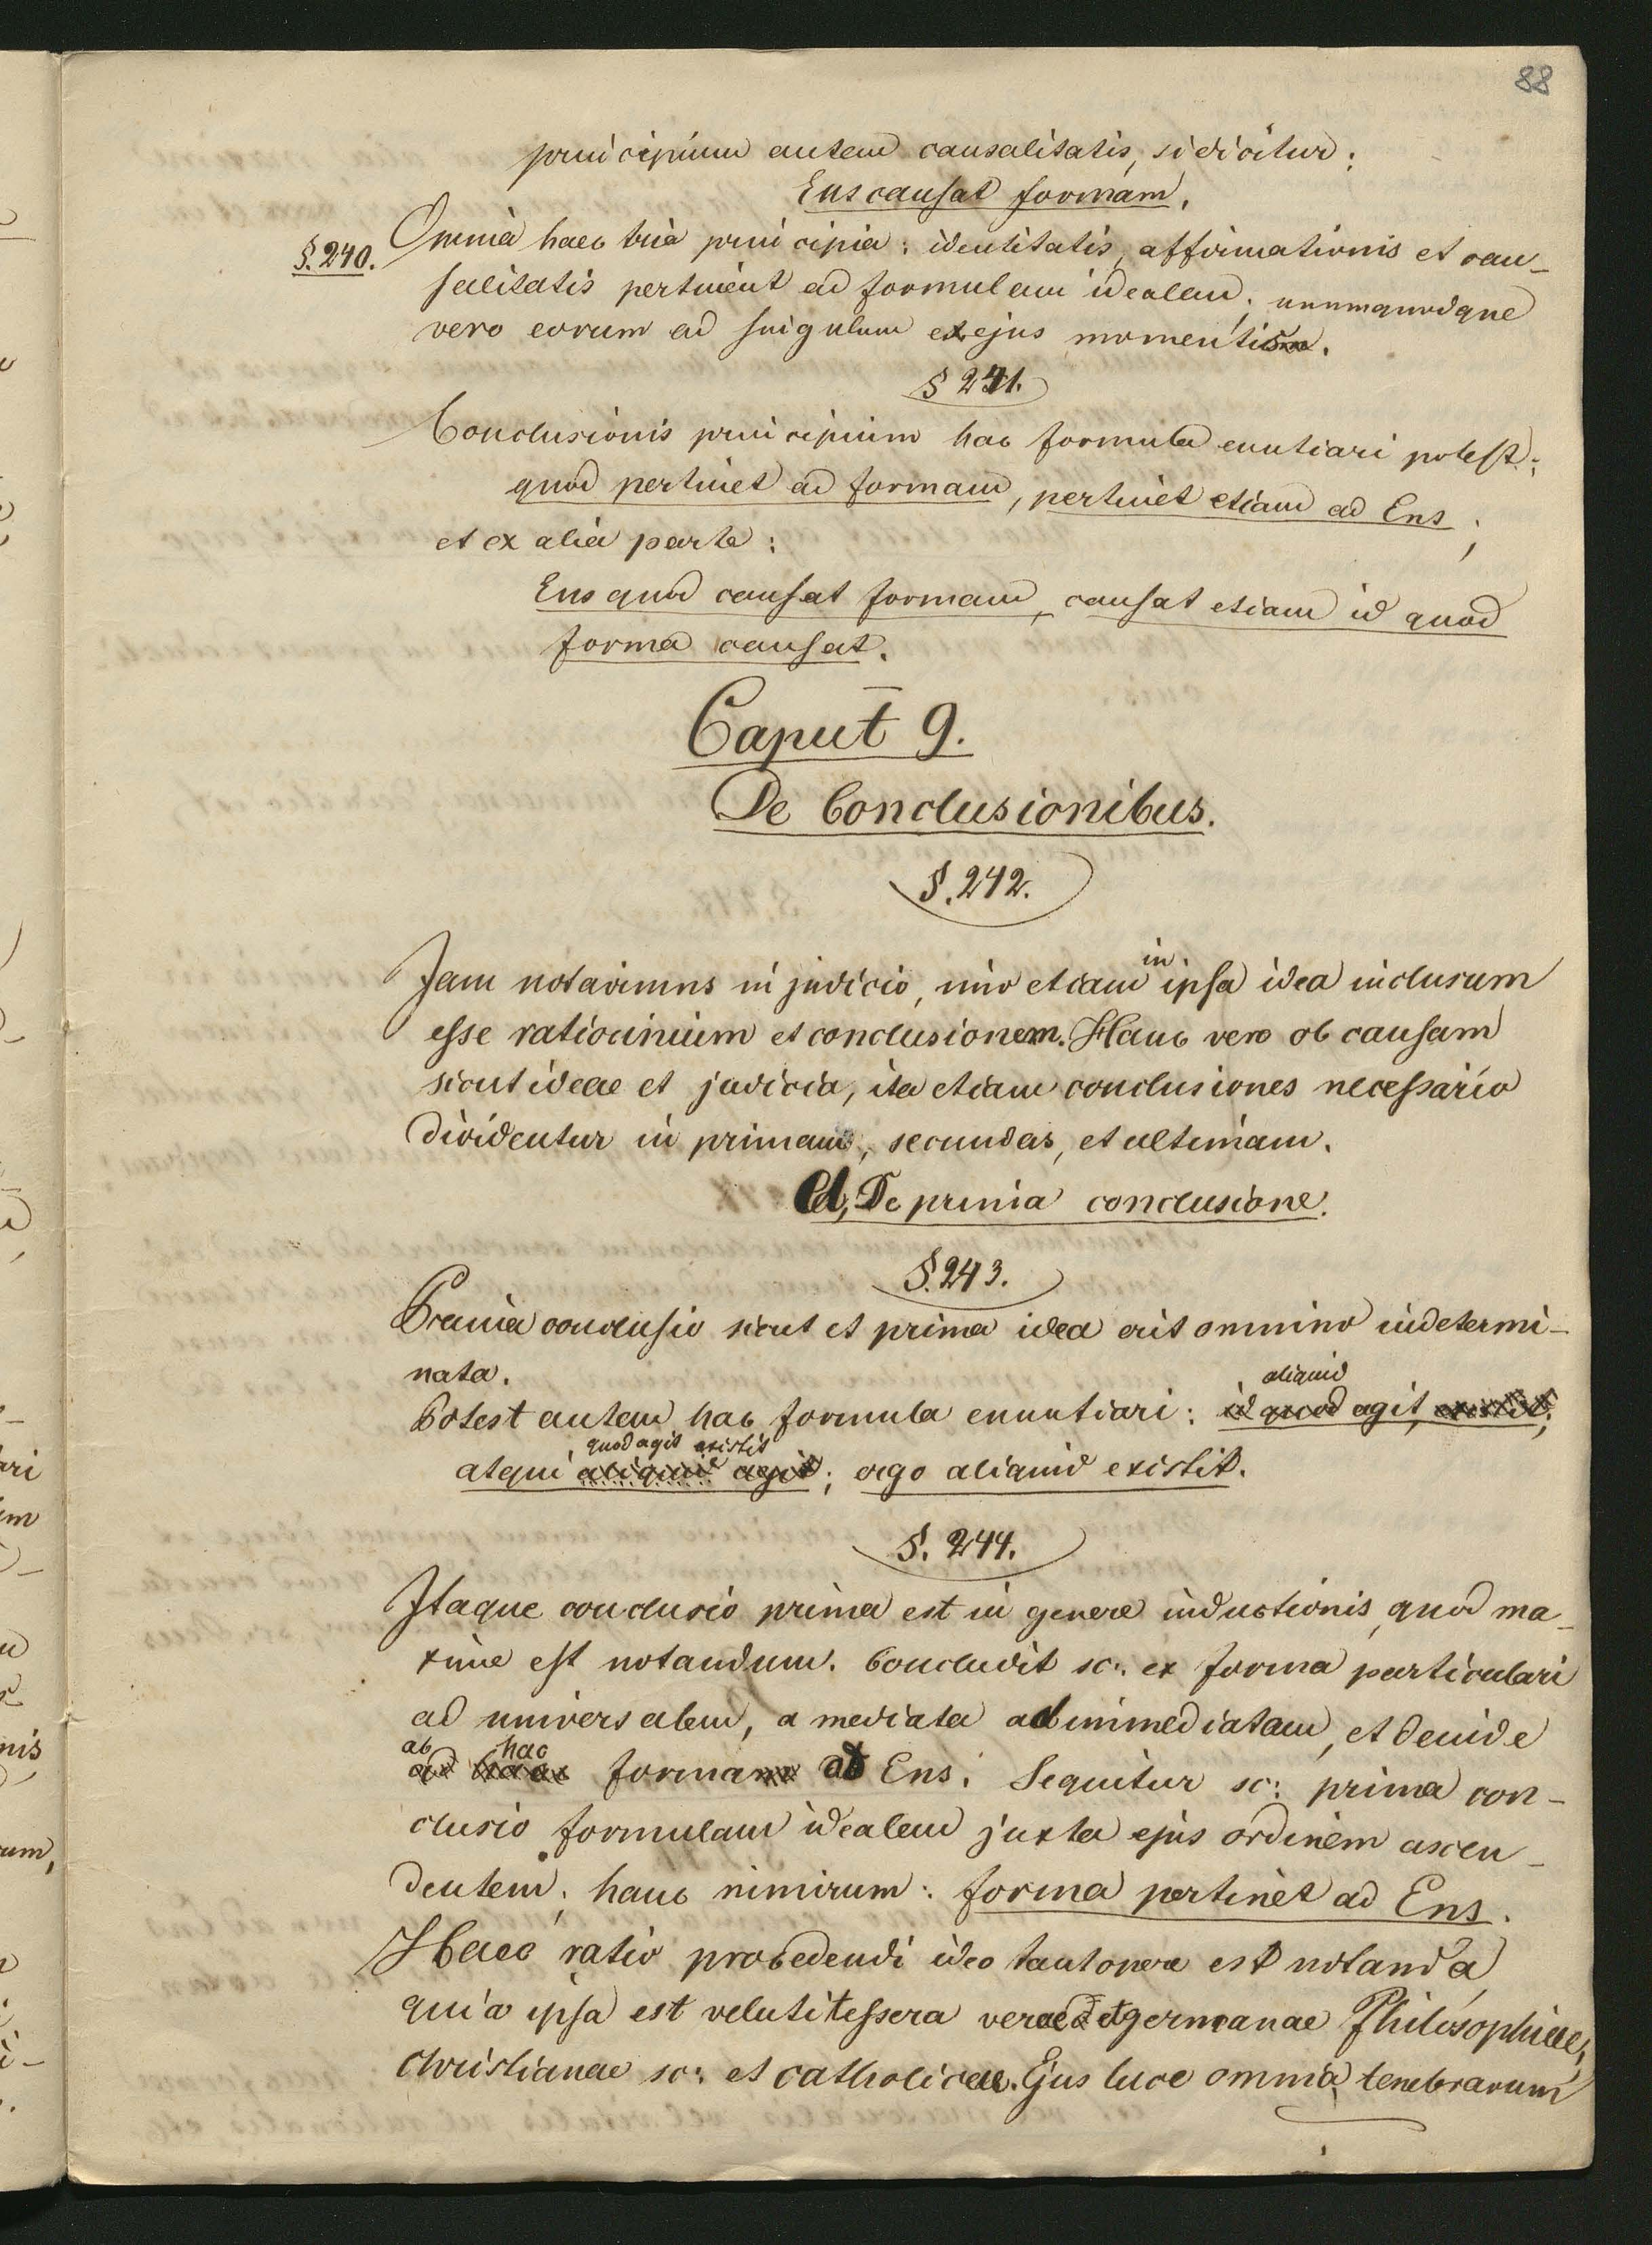 88
principium autem causalitatis, si dicitur:
Ens causat formam.
§. 240. Omnia haec tria principia: identitatis, affirmationis et cau-
salitatis pertinent ad formulam idealem; unumquodque
vero eorum ad singulum ex ejus momentis.
§ 241.
Conclusionis principium hac formula enuntiari potest:
quod pertinet ad formam, pertinet etiam ad Ens;
et ex alia parte:
Ens quod causat formam, causat etiam id quod
forma causat.
Caput 9.
De Conclusionibus.
§. 242.
Jam notavimus in judicio, imo etiam in ipsa idea inclusum
esse ratiocinium et conclusionem. Hanc vero ob causam
sicut ideae et judicia, ita etiam conclusiones necessario
dividentur in primam, secundas, et ultimam.
a, De prima conclusione.
§. 243.
Prima conclusio sicut et prima idea erit omnino indetermi-
nata.
aliquid
Potest autem hac formula enuntiari: id quod agit, existit;
quod agit existit
atqui aliquid agit; ergo aliquid existit.
§. 244.
Itaque conclusio prima est in genere inductionis, quod ma-
xime est notandum. Concludit sc: ex forma particulari
ad universalem, a mediata ad immediatam, et deinde
ab hac
ad forma ad Ens. Sequitur sc: prima con-
clusio formulam idealem juxta ejus ordinem ascen-
dentem; hanc nimirum: forma pertinet ad Ens.
Haec ratio procedendi ideo tantopere est notanda,
quia ipsa est veluti tessera verae et germanae Philosophiae,
christianae sc: et catholicae. Ejus luce omnia tenebrarum